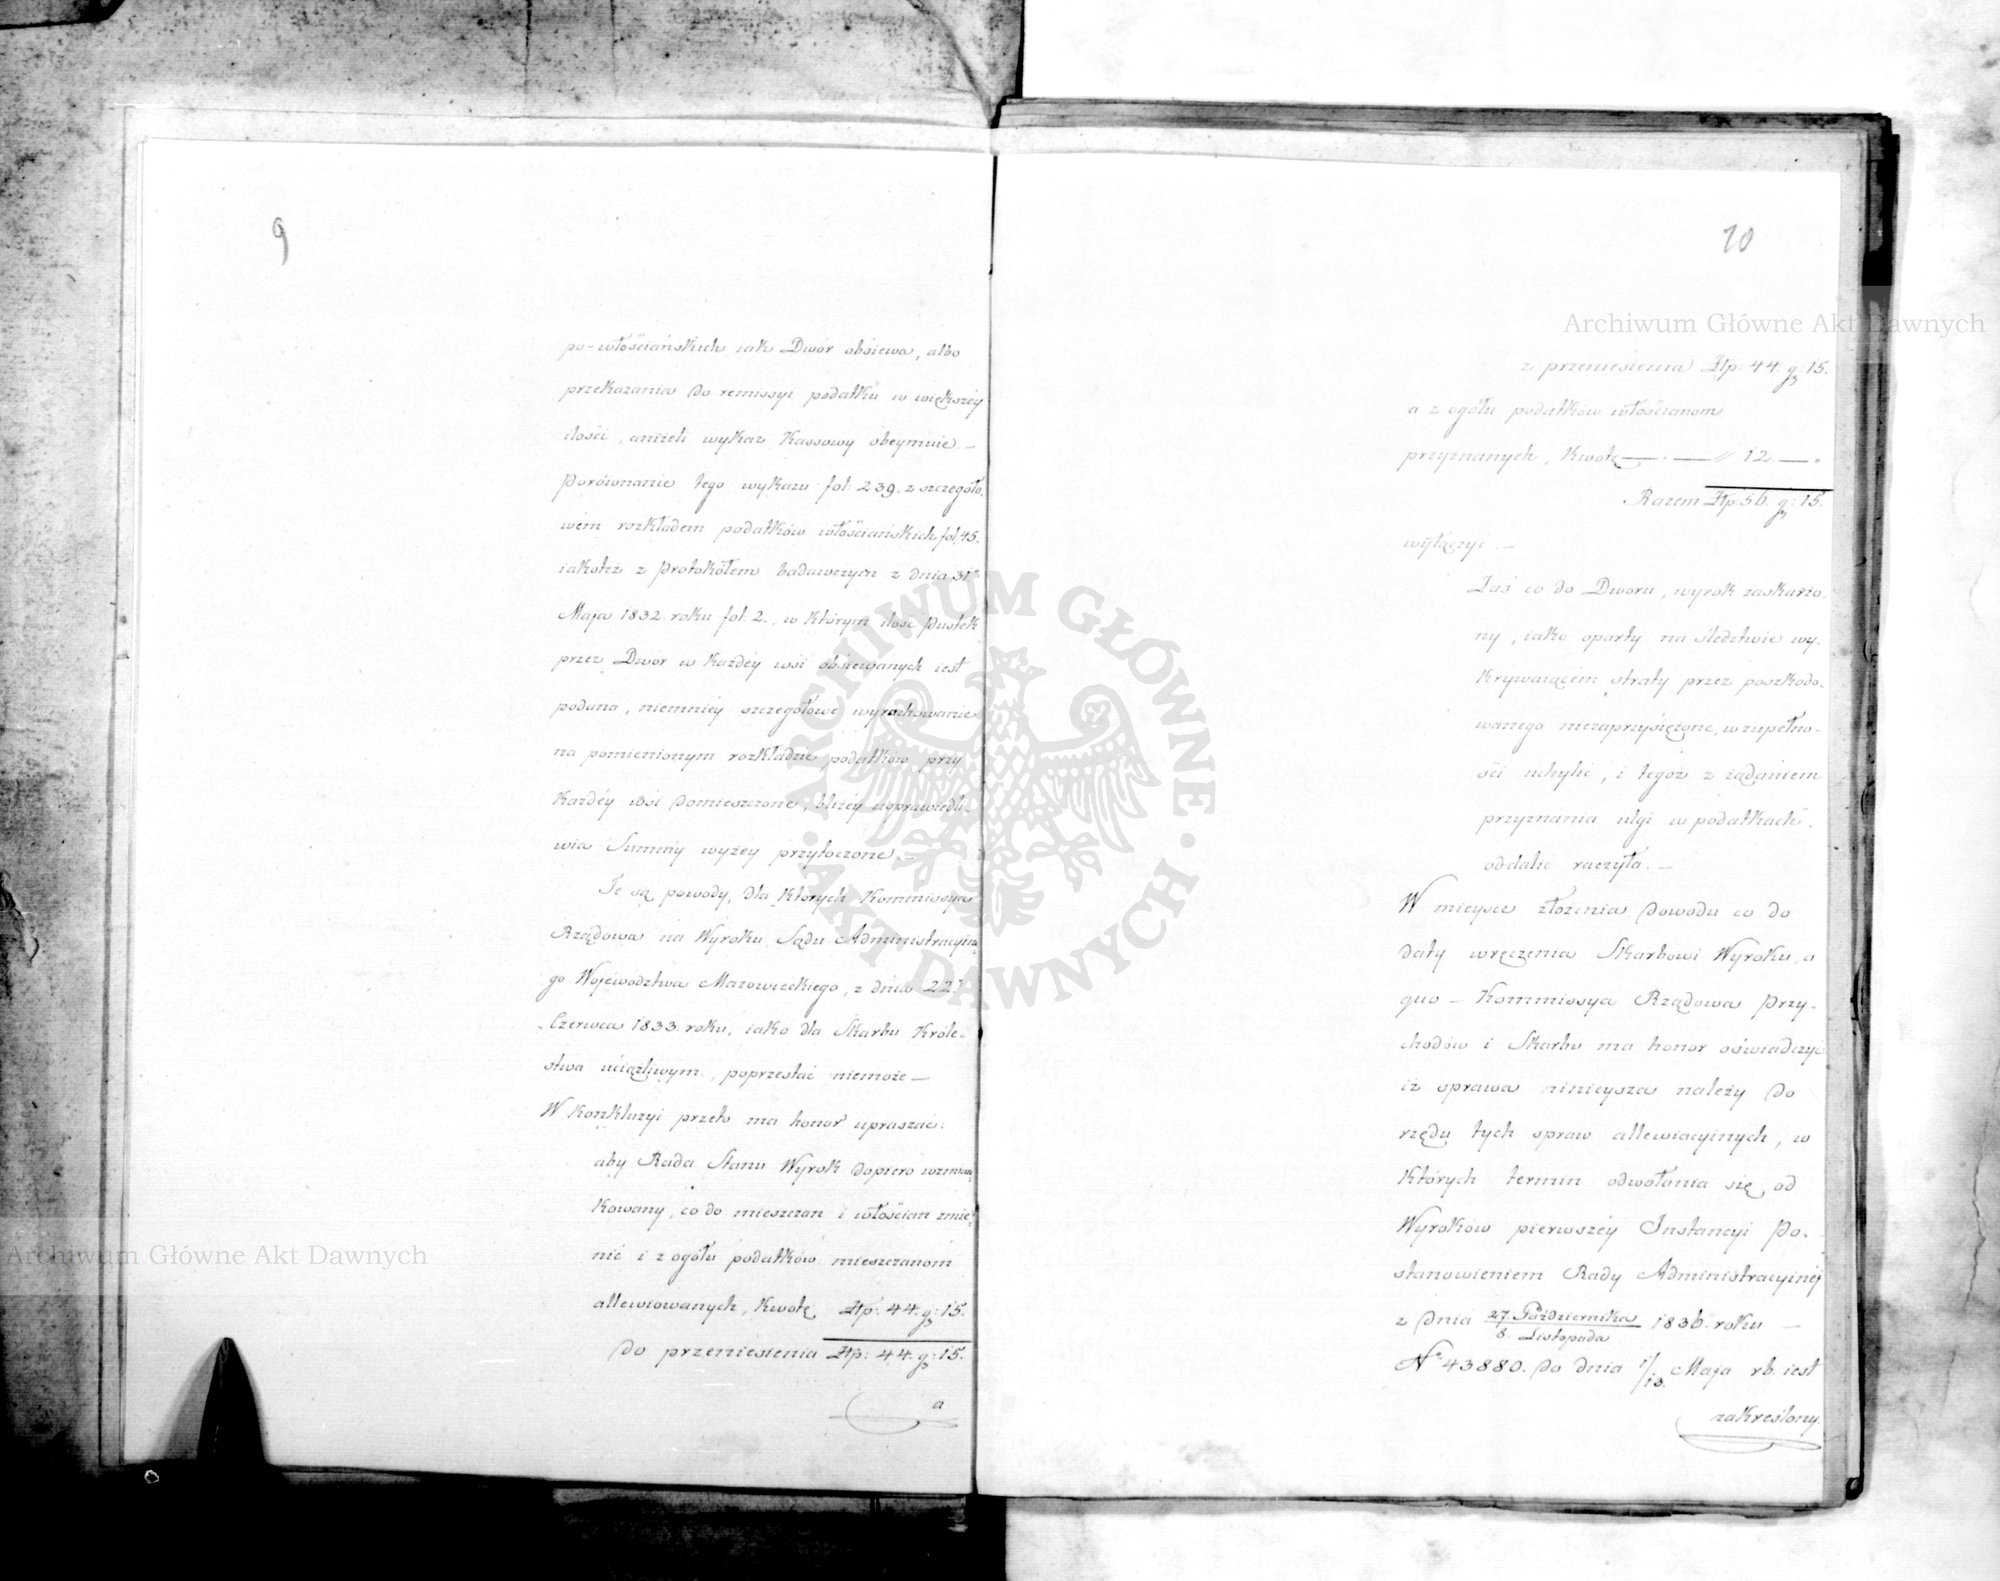 9
po-włościańskich iak Dwór obsiewa, albo
przekazania do remissyi podatku w większéy
ilości, aniżeli wykaz Kassowy obeymuie. —
Porównanie tego wykazu fol: 239. z szczegóło-
wém rozkładem podatków włościańskich fol: 45.
iakoteż z Protokółem badawczym z dnia 31go
Maja 1832. roku fol: 2., w którym ilość Pustek
przez Dwór w każdéy wsi obsiewanych iest
podana, niemniéy szczegółowe wyrachowanie
na pomienionym rozkładzie podatków przy
każdéy wsi domieszczone, bliżéy usprawiedli-
wia Summy wyżey przytoczone. —
Te są powody, dla których Kommissya
Rządowa na Wyroku Sądu Administracyine-
go Województwa Mazowieckiego, z dnia 22
Czerwca 1833. roku, iako dla Skarbu Króle-
stwa uciążliwym, poprzestać niemoże —
W Konkluzyi przeto ma honor upraszać:
aby Rada Stanu Wyrok dopiero wzmian-
kowany, co do mieszczan i włościan zmie-
nić i z ogółu podatków mieszczanom
allewiowanych, kwotę Złp: 44. g: 15.
do przeniesienia Złp: 44. g: 15.
a
10
z przeniesienia Złp: 44. g: 15.
a z ogółu podatków włościanom
przyznanych, kwotę — . — " 12. — "
Razem Złp: 56. g: 15.
wyłączyć. —
Zaś co do Dworu, wyrok zaskarżo-
ny, iako oparty na śledztwie wy-
krywaiącém straty przez poszkodo-
wanego niezaprzysiężone, w zupełno-
ści uchylić, i tegoż z żądaniem
przyznania ulgi w podatkach,
oddalić raczyła. —
W mieysce złożenia dowodu co do
daty wręczenia Skarbowi Wyroku, a
quo — Kommissya Rządowa Przy-
chodów i Skarbu ma honor oświadczyć
iż sprawa ninieysza należy do
rzędu tych spraw allewiacyinych, w
których termin odwołania się od
Wyroków pierwszéy Instancyi Po-
stanowieniem Rady Administracyinéj
z dnia 27 Października / 8 Listopada 1836. roku —
No 43880. do dnia 1/13. Maja rb. iest
zakreślony.
Archiwum Główne Akt Dawnych
Archiwum Główne Akt Dawnych
ARCHIWUM GŁÓWNE · AKT DAWNYCH ·